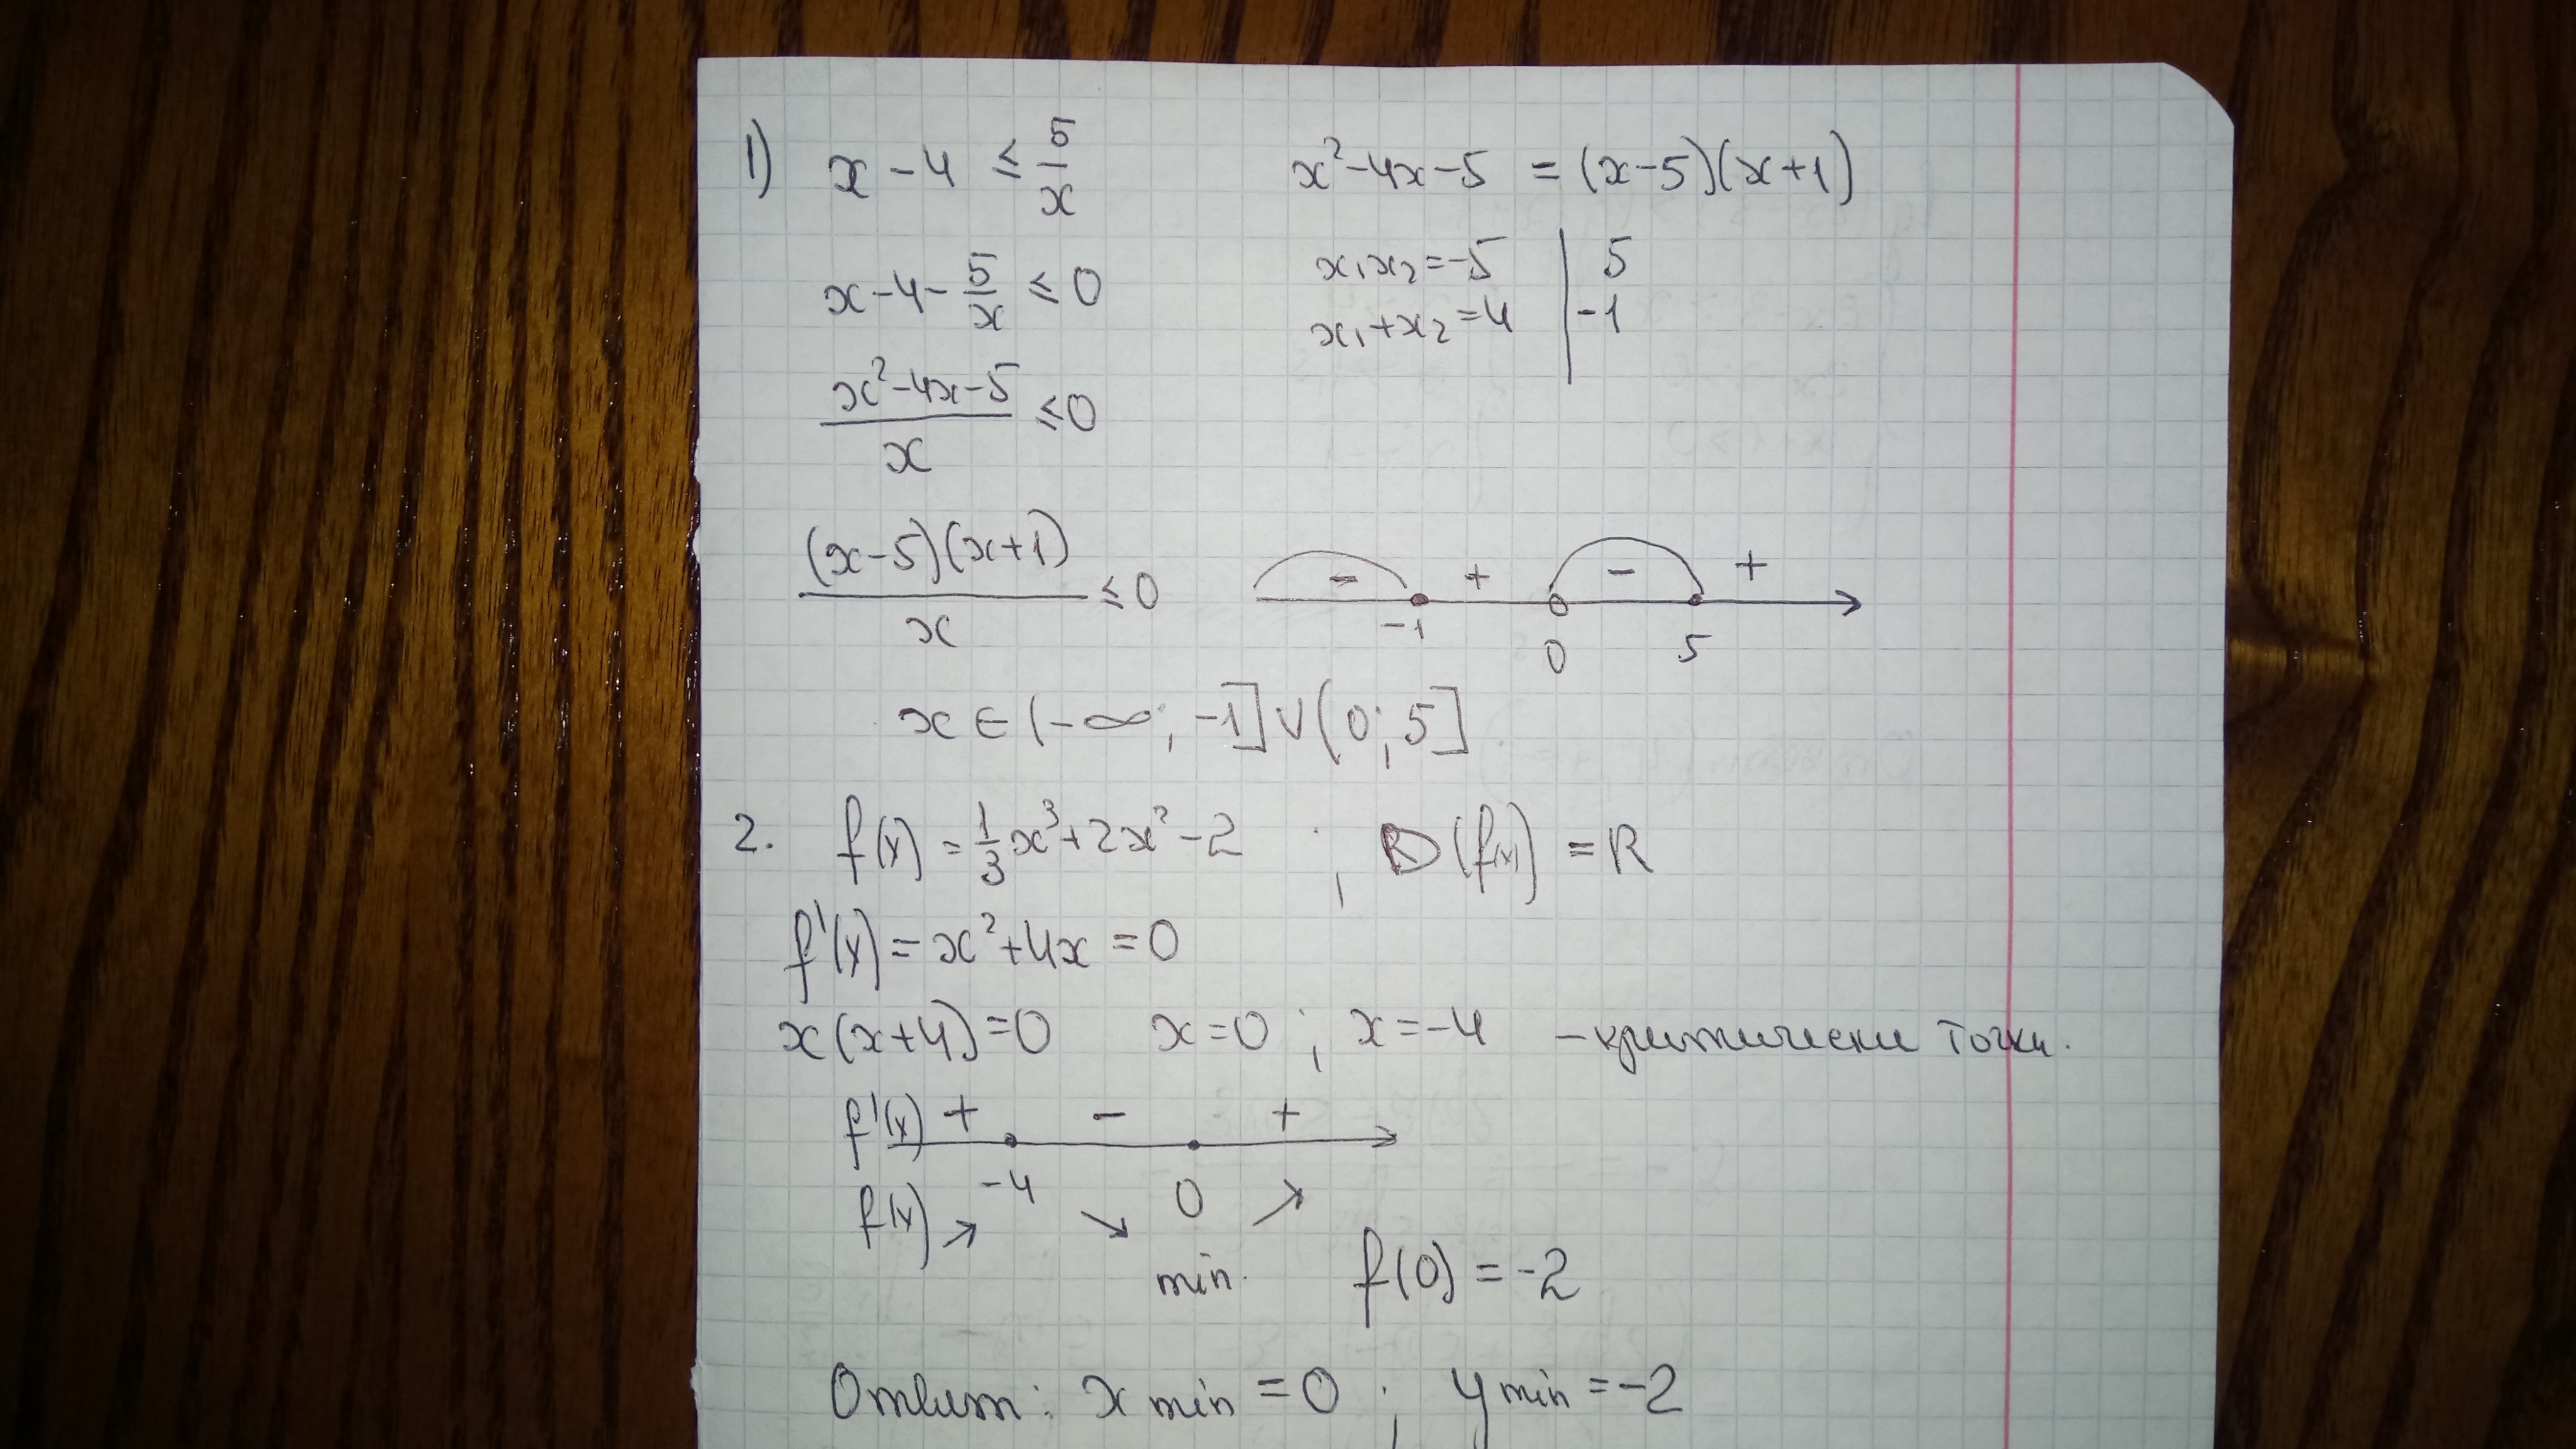 1) x - 4 ≤ 5/x
x² - 4x - 5 = (x-5)(x+1)
x - 4 - 5/x ≤ 0
x₁x₂ = -5 | 5
x₁ + x₂ = 4 | -1
(x² - 4x - 5)/x ≤ 0
(x-5)(x+1)/x ≤ 0
- + - +
-1 0 5
x ∈ (-∞; -1] ∨ (0; 5]
2. f(x) = 1/3 x³ + 2x² - 2 ; D(f(x)) = R
f'(x) = x² + 4x = 0
x(x+4) = 0 x = 0 ; x = -4 - критически точки.
f'(x) + - +
-4 0
f(x) ↗ ↘ ↗
min. f(0) = -2
Ответ: x min = 0 ; y min = -2